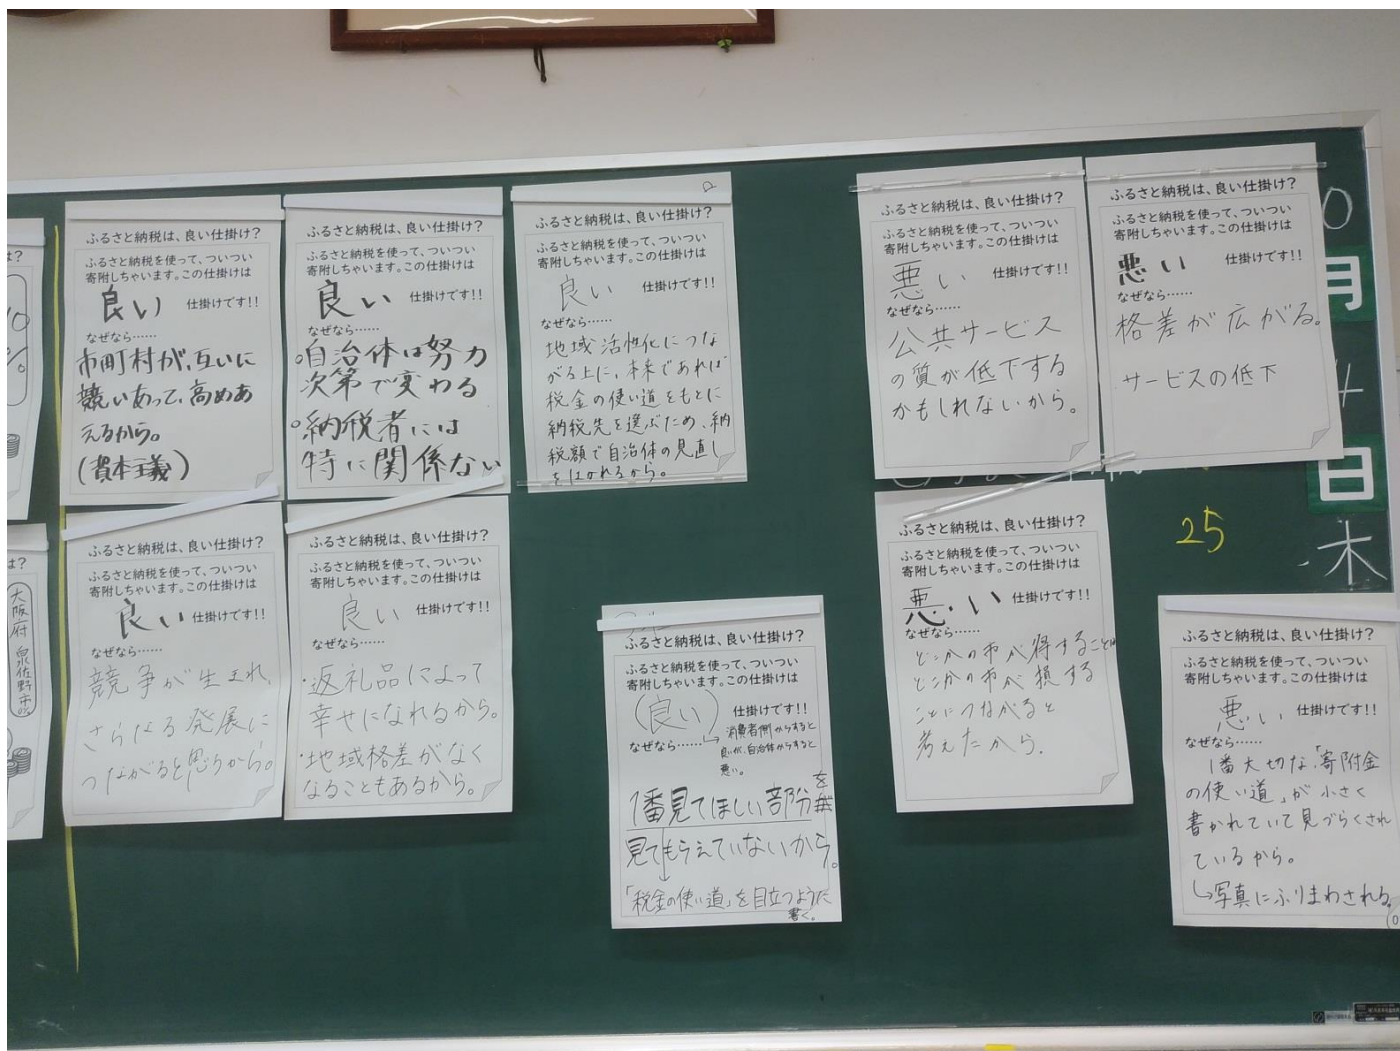 は?
%
は?
大阪府 泉佐野市
ふるさと納税は、良い仕掛け?
ふるさと納税を使って、ついつい
寄附しちゃいます。この仕掛けは
良い 仕掛けです!!
なぜなら……
市町村が、互いに
競いあって、高めあ
えるから。
(資本主義)
ふるさと納税は、良い仕掛け?
ふるさと納税を使って、ついつい
寄附しちゃいます。この仕掛けは
良い 仕掛けです!!
なぜなら……
。自治体は努力
次第で変わる
。納税者には
特に関係ない
ふるさと納税は、良い仕掛け?
ふるさと納税を使って、ついつい
寄附しちゃいます。この仕掛けは
良い 仕掛けです!!
なぜなら……
地域活性化につな
がる上に、本来であれば
税金の使い道をもとに
納税先を選ぶため、納
税額で自治体の見直し
をはかれるから。
ふるさと納税は、良い仕掛け?
ふるさと納税を使って、ついつい
寄附しちゃいます。この仕掛けは
悪い 仕掛けです!!
なぜなら……
公共サービス
の質が低下する
かもしれないから。
ふるさと納税は、良い仕掛け?
ふるさと納税を使って、ついつい
寄附しちゃいます。この仕掛けは
悪い 仕掛けです!!
なぜなら……
格差が広がる。
サービスの低下
0
月
4
日
木
25
ふるさと納税は、良い仕掛け?
ふるさと納税を使って、ついつい
寄附しちゃいます。この仕掛けは
良い 仕掛けです!!
なぜなら……
競争が生まれ、
さらなる発展に
つながると思うから。
ふるさと納税は、良い仕掛け?
ふるさと納税を使って、ついつい
寄附しちゃいます。この仕掛けは
良い 仕掛けです!!
なぜなら……
・返礼品によって
幸せになれるから。
・地域格差がなく
なることもあるから。
ふるさと納税は、良い仕掛け?
ふるさと納税を使って、ついつい
寄附しちゃいます。この仕掛けは
(良い) 仕掛けです!!
なぜなら……→消費者側からすると
良いが、自治体からすると
悪い。
1番見てほしい部分を
見てもらえていないから。
「税金の使い道」を目立つように
書く。
ふるさと納税は、良い仕掛け?
ふるさと納税を使って、ついつい
寄附しちゃいます。この仕掛けは
悪い 仕掛けです!!
なぜなら……
どこかの市が得することは
どこかの市が損する
ことにつながると
考えたから.
ふるさと納税は、良い仕掛け?
ふるさと納税を使って、ついつい
寄附しちゃいます。この仕掛けは
悪い 仕掛けです!!
なぜなら……
1番大切な「寄附金
の使い道」が小さく
書かれていて見づらくされ
ているから。
↳写真にふりまわされる。